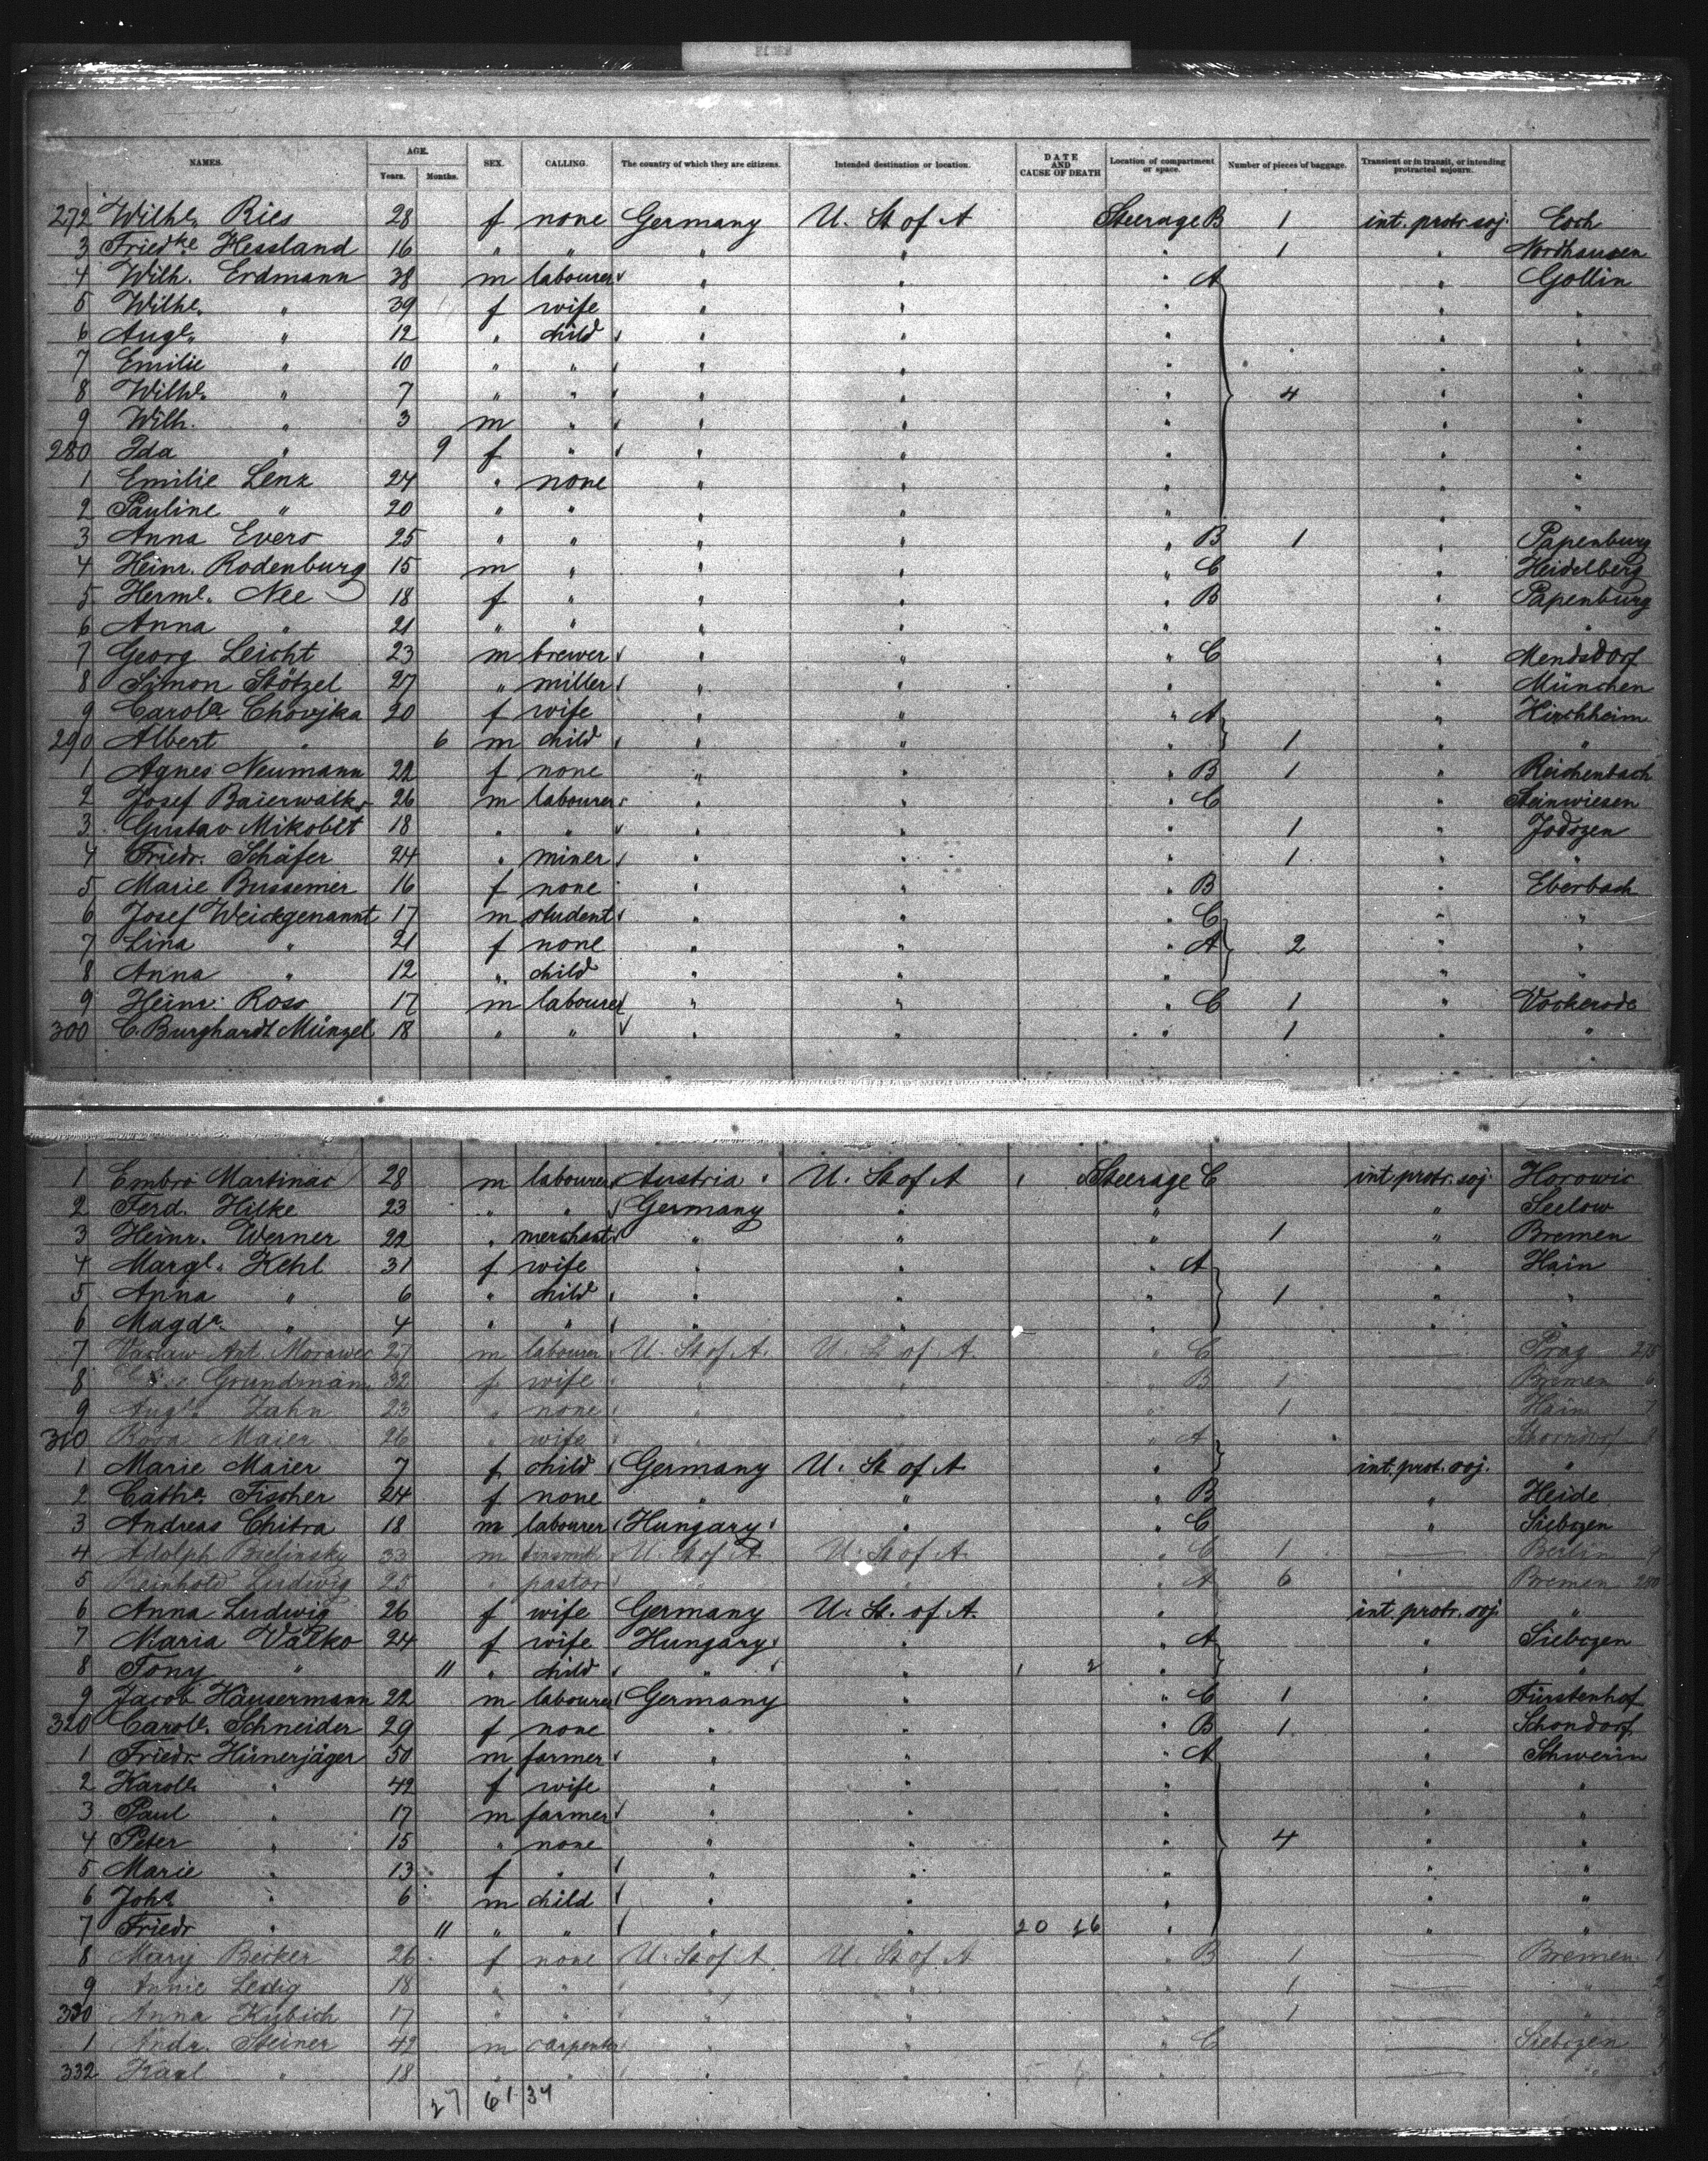 NAMES. AGE. Years. Months. SEX. CALLING. The country of which they are citizens. Intended destination or location. DATE AND CAUSE OF DEATH Location of compartment or space. Number of pieces of baggage. Transient or in transit, or intending protracted sojourn.
272 Wilhe. Ries 28 f none Germany U. St of A Steerage B 1 int. protr. soj. Esch
3 Friedke Hessland 16 " " " " " 1 " Nordhausen
4 Wilh. Erdmann 38 m labourer " " " A " Gollin
5 Wilhe. " 39 f wife " " " " "
6 Auge. " 12 " child " " " " "
7 Emilie " 10 " " " " " " "
8 Wilhe. " 7 " " " " " 4 " "
9 Wilh. " 3 m " " " " " "
280 Ida " 9 f " " " " " "
1 Emilie Lenz 24 " none " " " " "
2 Pauline " 20 " " " " " " "
3 Anna Evers 25 " " " " " B 1 " Papenburg
4 Heinr. Rodenburg 15 m " " " " C " Heidelberg
5 Herme. Nee 18 f " " " " B " Papenburg
6 Anna " 21 " " " " " " "
7 Georg Leicht 23 m brewer " " " C " Mendsdorf
8 Simon Stötzel 27 " miller " " " " München
9 Carola Chovjka 20 f wife " " " A " Kirchheim
290 Albert " 6 m child " " " 1 " "
1 Agnes Neumann 22 f none " " " B 1 " Reichenbach
2 Josef Baierwalks 26 m labourer " " " C " Steinwiesen
3 Gustav Mikobit 18 " " " " " 1 " Jodszen
4 Friedr. Schäfer 24 " miner " " " 1 " "
5 Marie Bussemer 16 f none " " " B " Eberbach
6 Josef Weickgenannt 17 m student " " " C " "
7 Lina " 21 f none " " " A 2 " "
8 Anna " 12 " child " " " " "
9 Heinr. Ross 17 m labourer " " " C 1 " Vockerode
300 C. Burghardt Münzel 18 " " " " " 1 " "
1 Embro Martinac 28 m labourer Austria U. St of A 1 Steerage C int. protr. soj. Horowic
2 Ferd. Hilke 23 " " Germany " " " Seelow
3 Heinr. Werner 22 " merchant " " " 1 " Bremen
4 Margt. Kehl 31 f wife " " " A " Hain
5 Anna " 6 " child " " " 1 " "
6 Magda. " 4 " " " " " " "
7 Vaclaw Ant. Morawec 27 m labourer U. St of A. U. St of A. " C — Prag 275
8 Grundmann 32 f wife " " " B 1 — Bremen 6
9 Auge. Zahn 23 " none " " " 1 — Hain 7
310 Rosa Maier 26 " wife " " " A — Schorndorf 8
1 Marie Maier 7 f child Germany U. St of A " int. prot. soj. "
2 Catha. Fischer 24 f none " " " B " Heide
3 Andreas Chitra 18 m labourer Hungary " " C " Siebozen
4 Adolph Bielinsky 33 m U. St of A U. St of A " C 1 — Berlin 9
5 Reinhold Ludwig 25 " pastor " " " A 6 — Bremen 280
6 Anna Ludwig 26 f wife Germany U. St. of A. " int. protr. soj. "
7 Maria Valko 24 f wife Hungary " " A " Siebozen
8 Tony " 11 " child " " 1 2 " " "
9 Jacob Häusermann 22 m labourer Germany " " C 1 " Fürstenhof
320 Carole. Schneider 29 f none " " " B 1 " Schondorf
1 Friedr. Hünerjäger 50 m farmer " " " A " Schwerin
2 Karole. " 42 f wife " " " " "
3 Paul " 17 m farmer " " " " "
4 Peter " 15 " none " " " 4 " "
5 Marie " 13 f " " " " " "
6 Joha. " 6 m child " " " " "
7 Friedr. " 11 " " " " 20 26 " " "
8 Mary Becker 26 f none U. St of A U. St of A " B 1 — Bremen 1
9 Annie Ledig 18 " " " " " 1 — " 2
330 Anna Kubich 17 " " " " " 1 — " 3
1 Andr. Steiner 42 m carpenter " " " C — Siebozen 4
332 Karl " 18 " " " " " — " 5
27 61 34